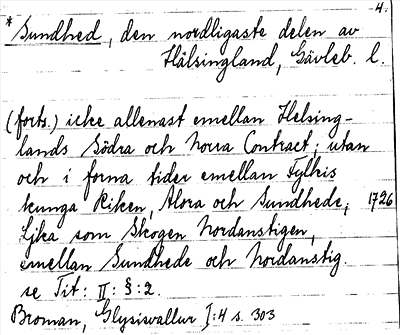 4.
* Sundhed, den nordligaste delen av
Hälsingland, Gävleb. l.
(forts.) icke allenast emellan Helsing-
lands Södra och Norra Contract; utan
och i forna tider emellan Fylkis
kunga Riken, Alora och Sundhede; 1726
Lika som Skogen Nordanstigen,
emellan Sundhede och Nordanstig
se Tit: II: §: 2.
Broman, Glysisvallur I:4 s. 303